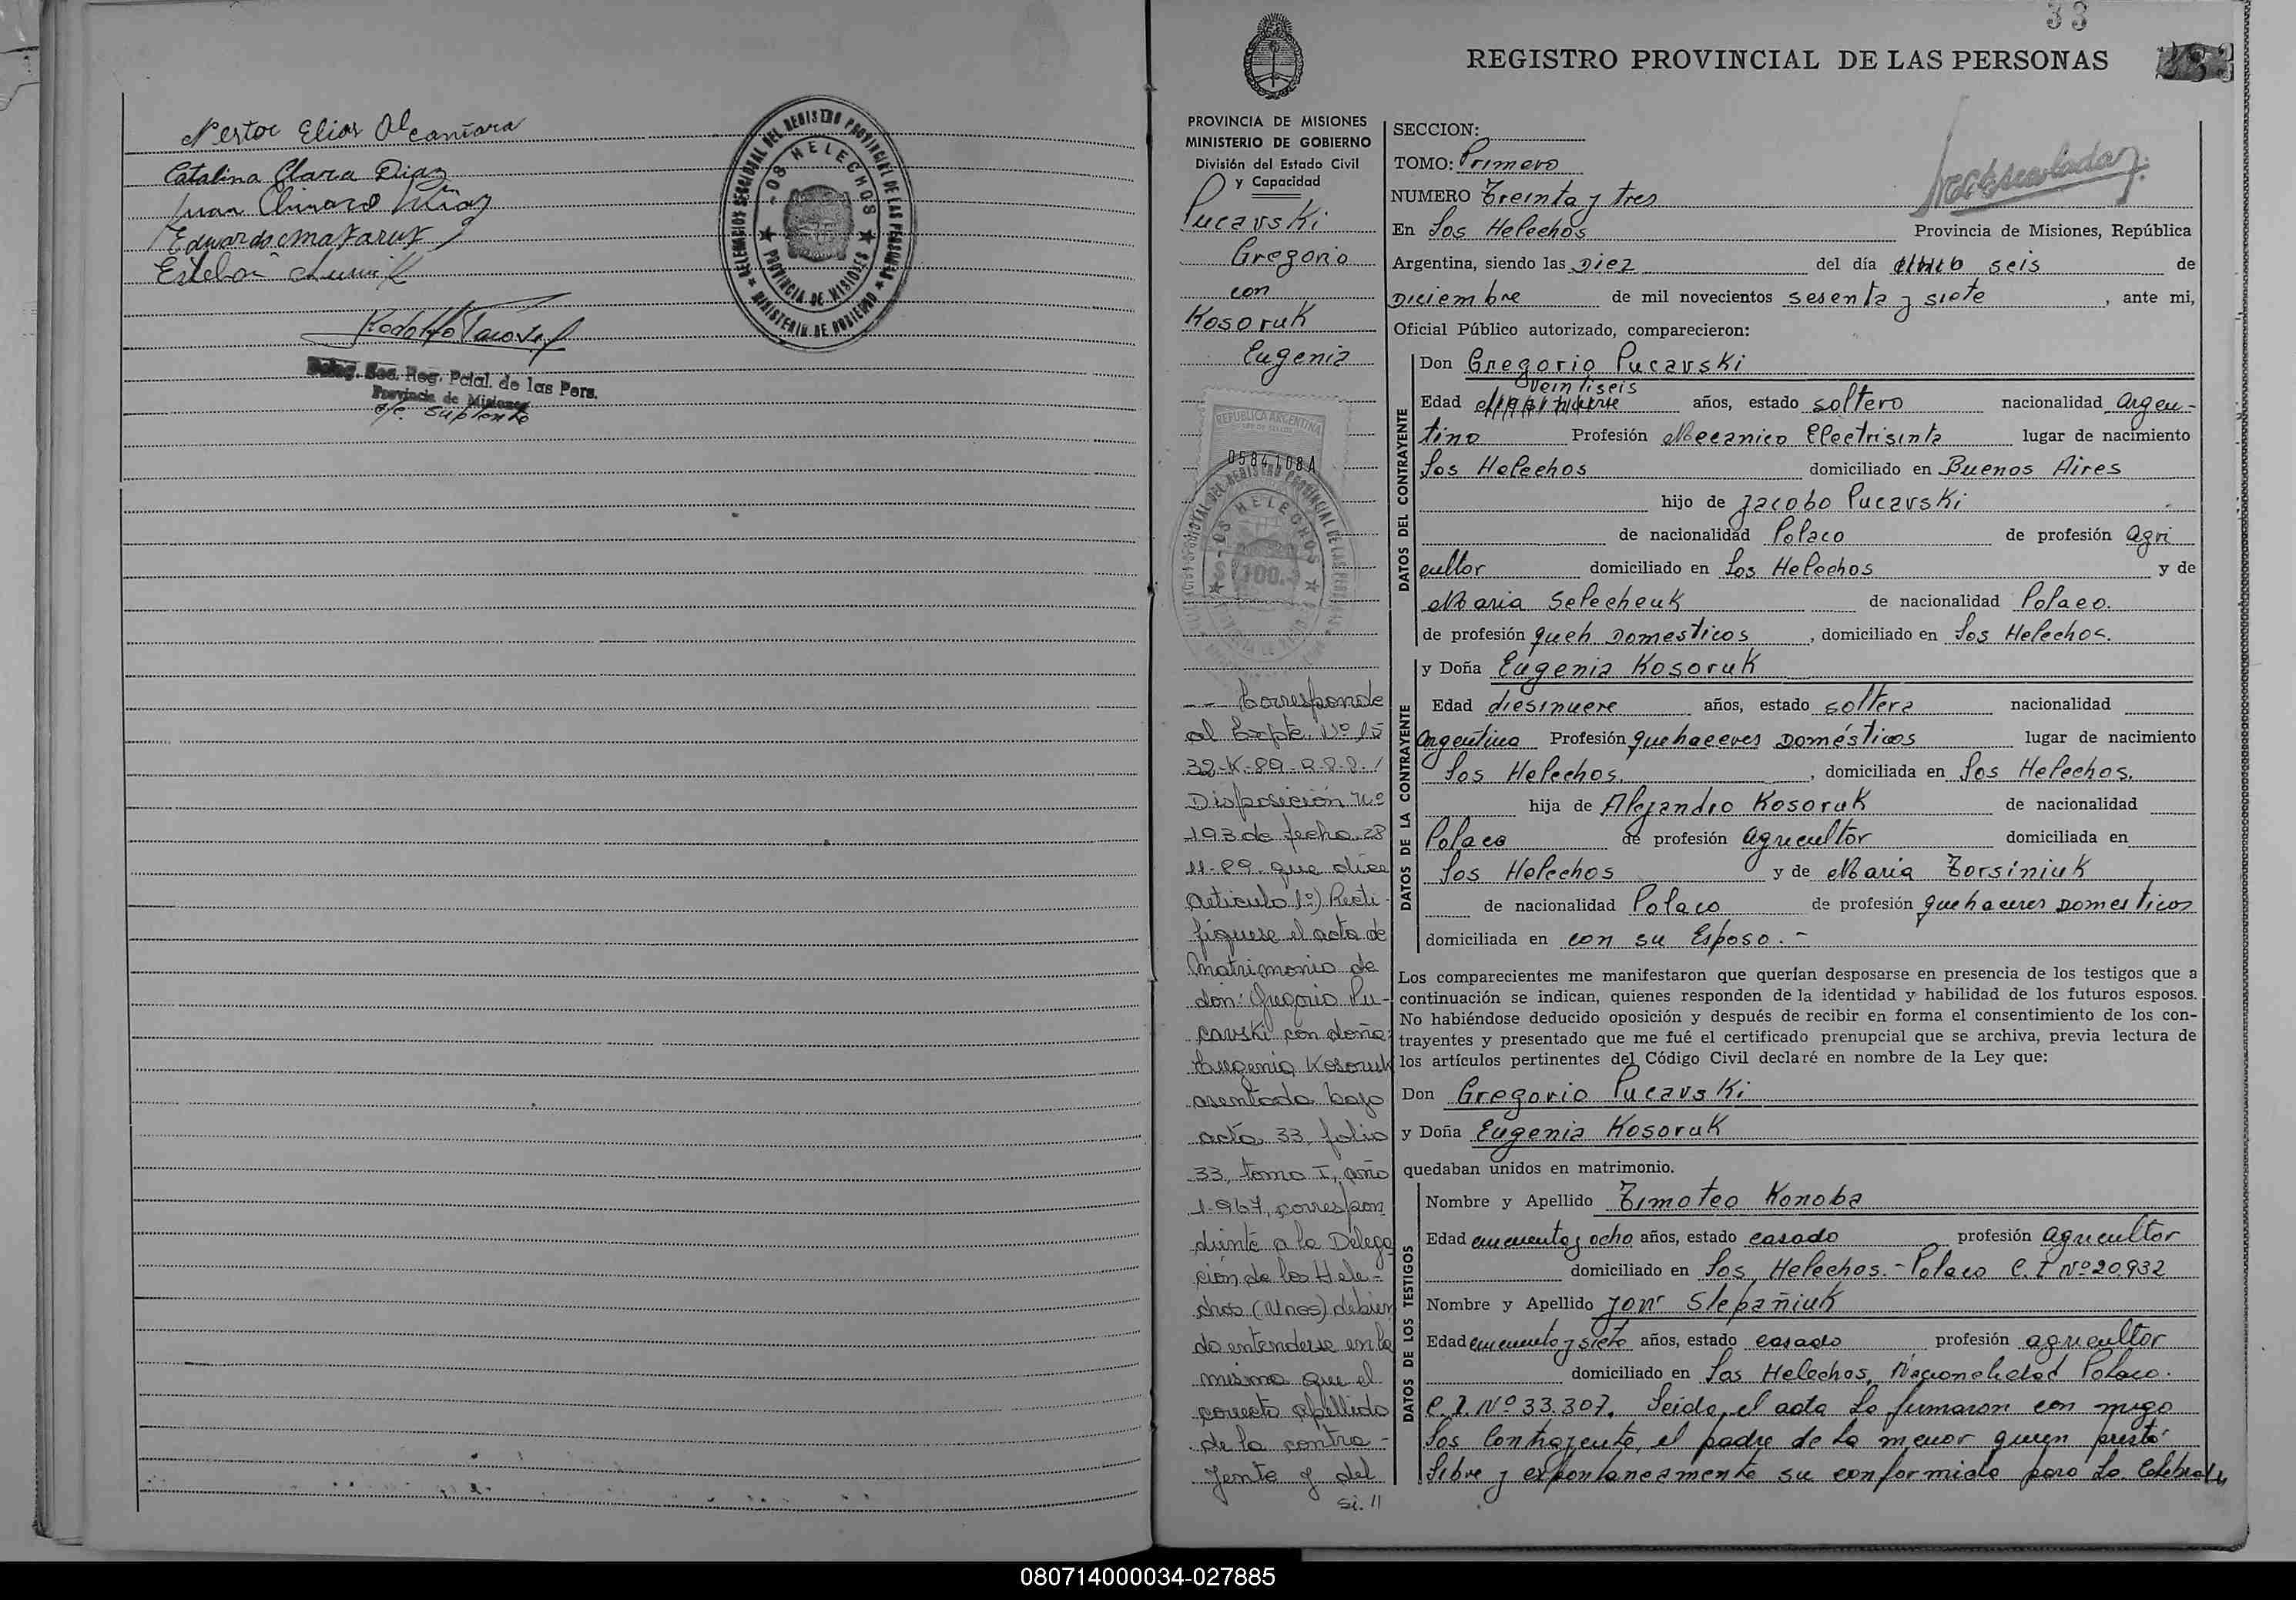 Nestor Elias Alcantara
Catalina Clara Diaz
Juan
Eduardo
Esteban
Rodolfo
Deleg. Sec. Reg. Pcial. de las Pers.
Provincia de Misiones
suplente
DELEGACION SECCIONAL DEL REGISTRO PROVINCIAL DE LAS PERSONAS
LOS HELECHOS
PROVINCIA DE MISIONES
MINISTERIO DE GOBIERNO
33
REGISTRO PROVINCIAL DE LAS PERSONAS
PROVINCIA DE MISIONES
MINISTERIO DE GOBIERNO
División del Estado Civil
y Capacidad
Pucavski
Gregorio
con
Kosoruk
Eugenia
REPUBLICA ARGENTINA
0584108A
LOS HELECHOS
100.
-- Corresponde
al Expte. Nº 15
32-K-89-R.P.P./
Disposición Nº
193 de fecha 28
11-89 que dice
Articulo 1º) Recti-
fiquese el acta de
Matrimonio de
don: Gregorio Pu-
cavski con doña:
Eugenia Kosoruk
asentada bajo
acta 33, folio
33, tomo I, año
1.967, correspon
diente a la Delega
ción de los Hele-
chos (Unos) debien
do entenderse en la
misma que el
correcto apellido
de la contra-
yente y del
si. //
SECCION:
TOMO: Primero
NUMERO Treinta y tres
En Los Helechos Provincia de Misiones, República
Argentina, siendo las Diez del día seis de
Diciembre de mil novecientos sesenta y siete, ante mi,
Oficial Público autorizado, comparecieron:
DATOS DEL CONTRAYENTE
Don Gregorio Pucavski
Veintiseis
Edad años, estado soltero nacionalidad Argen-
tino Profesión Mecanico Electrisista lugar de nacimiento
Los Helechos domiciliado en Buenos Aires
hijo de Jacobo Pucavski
de nacionalidad Polaco de profesión Agri
cultor domiciliado en Los Helechos y de
Maria Selecheuk de nacionalidad Polaco.
de profesión queh Domesticos, domiciliado en Los Helechos.
DATOS DE LA CONTRAYENTE
y Doña Eugenia Kosoruk
Edad diesinueve años, estado soltera nacionalidad
Argentina Profesión quehaceres Domésticos lugar de nacimiento
Los Helechos, domiciliada en Los Helechos.
hija de Alejandro Kosoruk de nacionalidad
Polaco de profesión agricultor domiciliada en
Los Helechos y de Maria Torsiniuk
de nacionalidad Polaco de profesión quehaceres Domesticos
domiciliada en con su Esposo.-
Los comparecientes me manifestaron que querían desposarse en presencia de los testigos que a
continuación se indican, quienes responden de la identidad y habilidad de los futuros esposos.
No habiéndose deducido oposición y después de recibir en forma el consentimiento de los con-
trayentes y presentado que me fué el certificado prenupcial que se archiva, previa lectura de
los artículos pertinentes del Código Civil declaré en nombre de la Ley que:
Don Gregorio Pucavski
y Doña Eugenia Kosoruk
quedaban unidos en matrimonio.
DATOS DE LOS TESTIGOS
Nombre y Apellido Timoteo Konoba
Edad cincuenta y ocho años, estado casado profesión agricultor
domiciliado en Los Helechos.- Polaco C.I Nº 20932
Nombre y Apellido Slepañiuk
Edad cincuenta y siete años, estado casado profesión agricultor
domiciliado en Los Helechos, Nacionalidad Polaco.
C.I. Nº 33.307. Leida el acta la firmaron con migo
los Contrayente, el padre de la menor quien prestó
libre y expontaneamente su conformida para la Celebrat
080714000034-027885